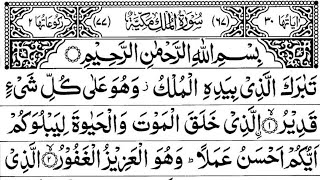 اٰیاتها ٣٠ (٦٧) سُوْرَةُ الْمُلْكِ مَكِّیَّةٌ (٧٧) رکوعاتها ٢
بِسْمِ اللّٰهِ الرَّحْمٰنِ الرَّحِیْمِ
تَبٰرَكَ الَّذِیْ بِیَدِهِ الْمُلْكُ ز وَهُوَ عَلٰی كُلِّ شَیْءٍ
قَدِیْرُ ۙ﴿١﴾ الَّذِیْ خَلَقَ الْمَوْتَ وَالْحَیٰوةَ لِیَبْلُوَكُمْ
اَیُّكُمْ اَحْسَنُ عَمَلًا ؕ وَهُوَ الْعَزِیْزُ الْغَفُوْرُ ۙ﴿٢﴾ الَّذِیْ